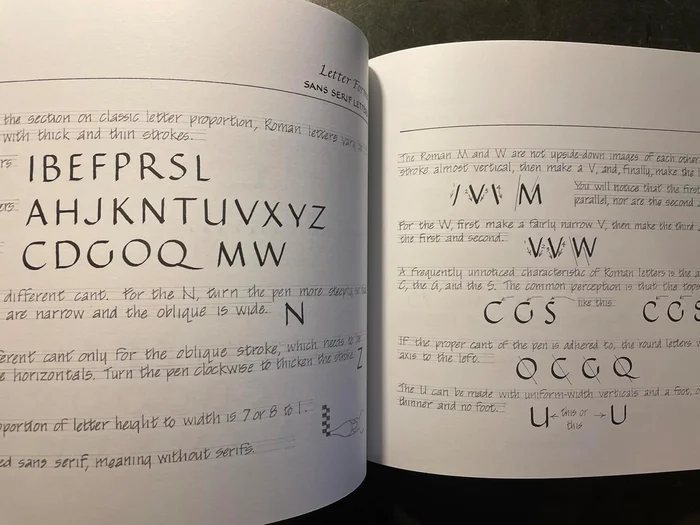 Letter For
SANS SERIF LETTE
the section on classic letter proportion, Roman letters vary in
with thick and thin strokes.
IBEFPRSL
AHJKNTUVXYZ
CDGOQ MW
different cant. For the N, turn the pen more steeply
are narrow and the oblique is wide. N
erent cant only for the oblique stroke, which needs to
e horizontals. Turn the pen clockwise to thicken the stroke. Z
oportion of letter height to width is 7 or 8 to 1.
ed sans serif, meaning without serifs.
The Roman M and W are not upside-down images of each other
stroke almost vertical, then make a V, and, finally, make the l
You will notice that the first
parallel, nor are the second
M
For the W, first make a fairly narrow V, then make the third
the first and second.
W
A frequently unnoticed characteristic of Roman letters is the a
C, the G, and the S. The common perception is that the tops
CGS like this. CGS
If the proper cant of the pen is adhered to, the round letters
axis to the left.
OCGQ
The U can be made with uniform-width verticals and a foot, o
thinner and no foot.
U this or this U